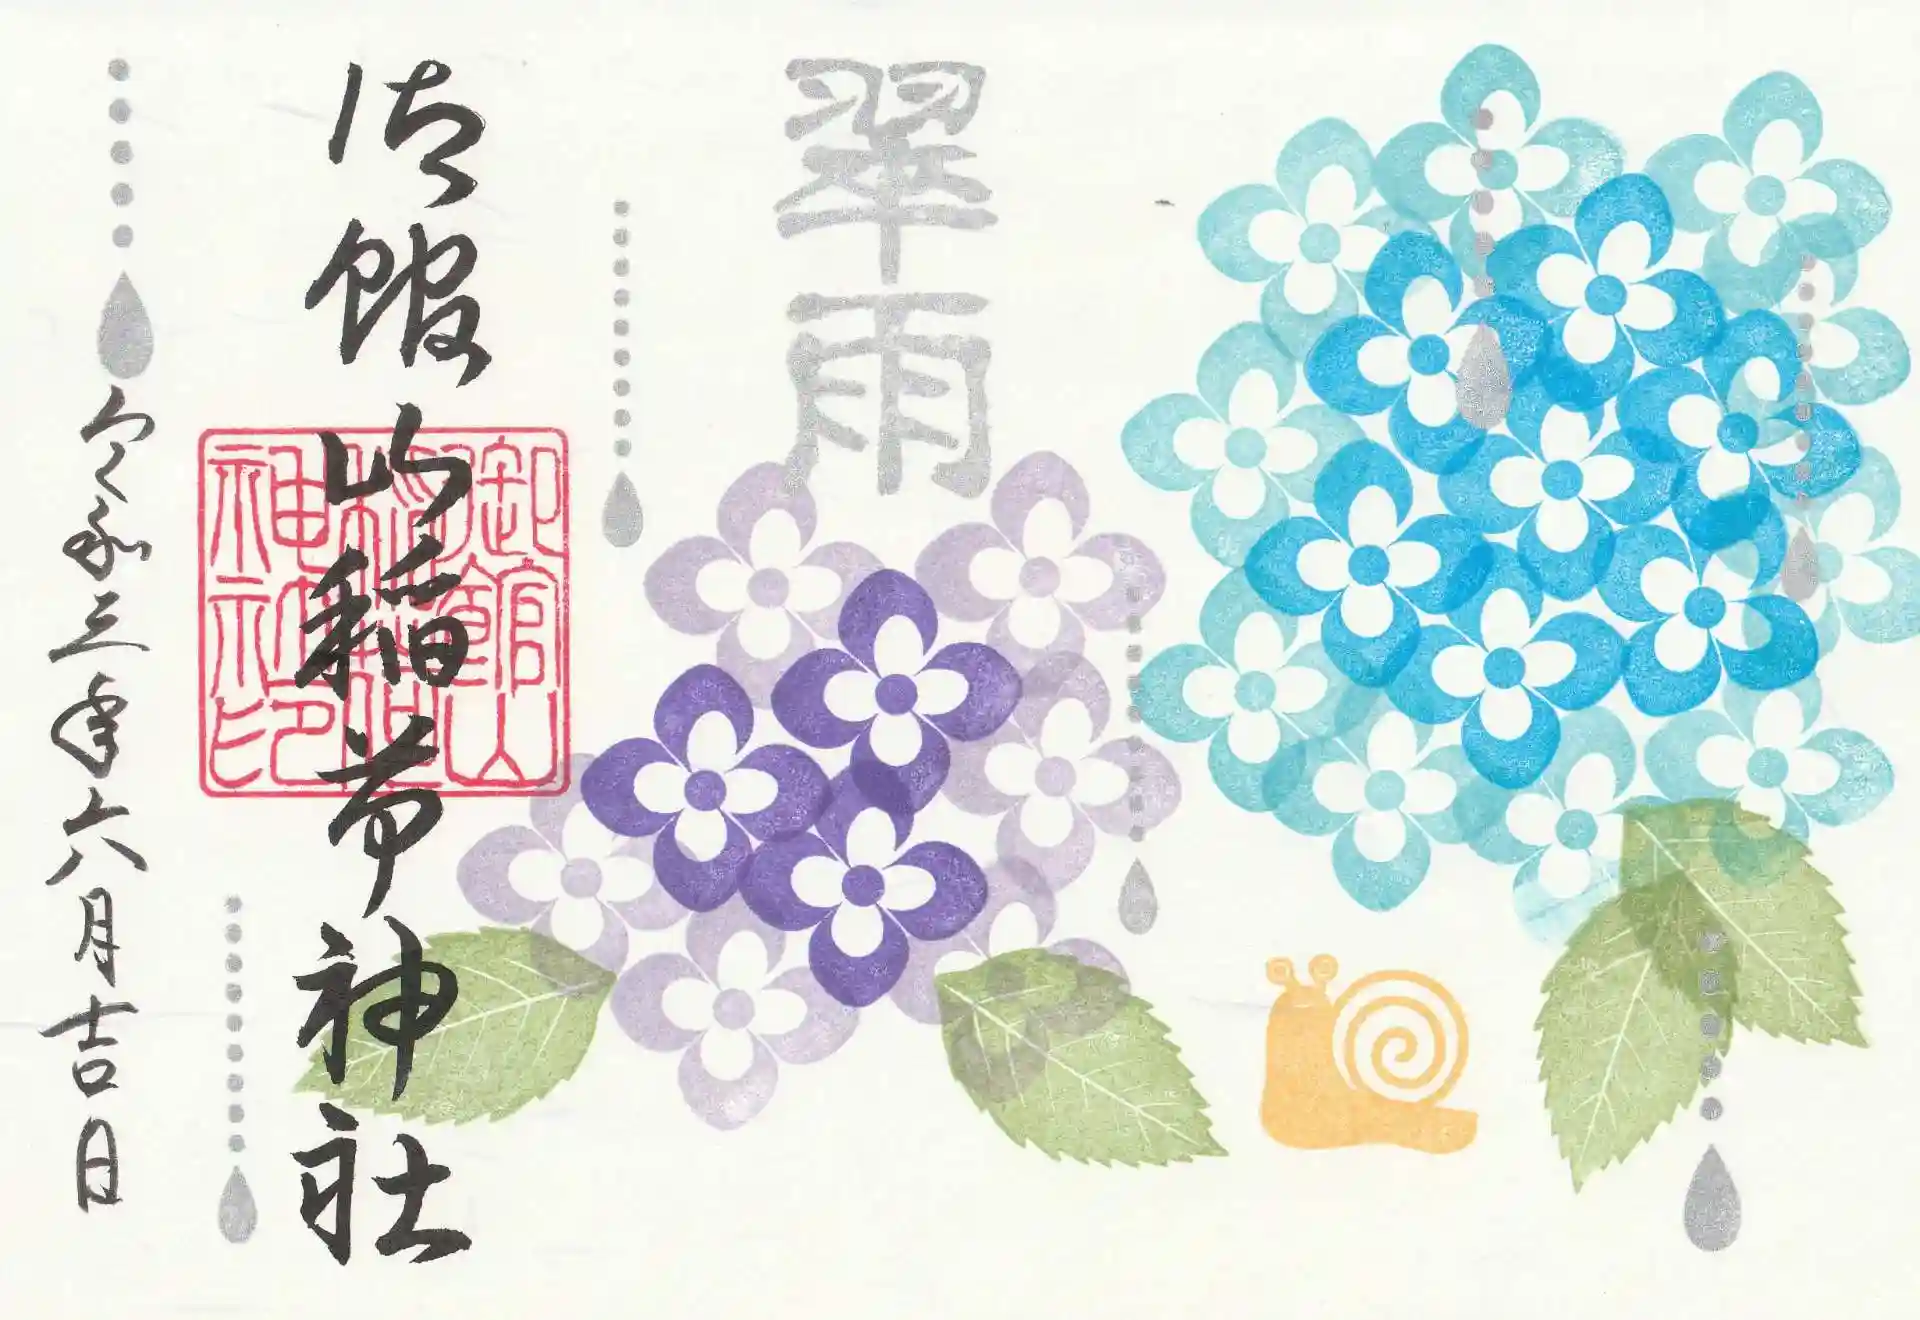 翠雨
御館山稲荷神社
御館山
稲荷
神社印
令和三年六月吉日